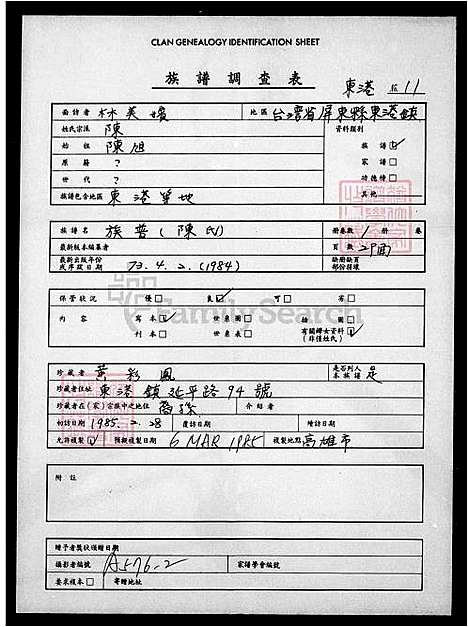 CLAN GENEALOGY IDENTIFICATION SHEET
族譜調查表
東港 11
面訪者 林美嬪 地區 台灣省屏東縣東港鎮
姓氏宗派 陳 資料類別
始祖 陳旭 族譜☑
原籍 ? 家譜□
世代 ? 功德榜□
族譜包含地區 東港等地 其他
族譜名 族普(陳氏) 冊卷數 1 冊 卷
最新版本編纂者 頁數 29面
最新出版年份或序跋日期 73.4.2.(1984) 缺冊缺頁部份證標
保管狀況 優□ 良☑ 可□ 劣□
內容 寫本☑ 世系圖□ 插圖□
刊本□ 世系表□ 有關婦女資料(非僅姓氏)☑
FamilySearch
珍藏者 黃彩鳳 是否列入本族譜 是
珍藏者住址 東港鎮延平路94號
珍藏者在(家)宗族中之地位 裔孫 介紹者
初訪日期 1985.2.28 覆訪日期 續訪日期
允許複製☑ 預擬複製日期 6 MAR 1985 複製地點 高雄市
附註
贈予者獎狀頒贈日期
攝影者編號 A576-2 家譜學會編號
要求複本□ 寄贈地址